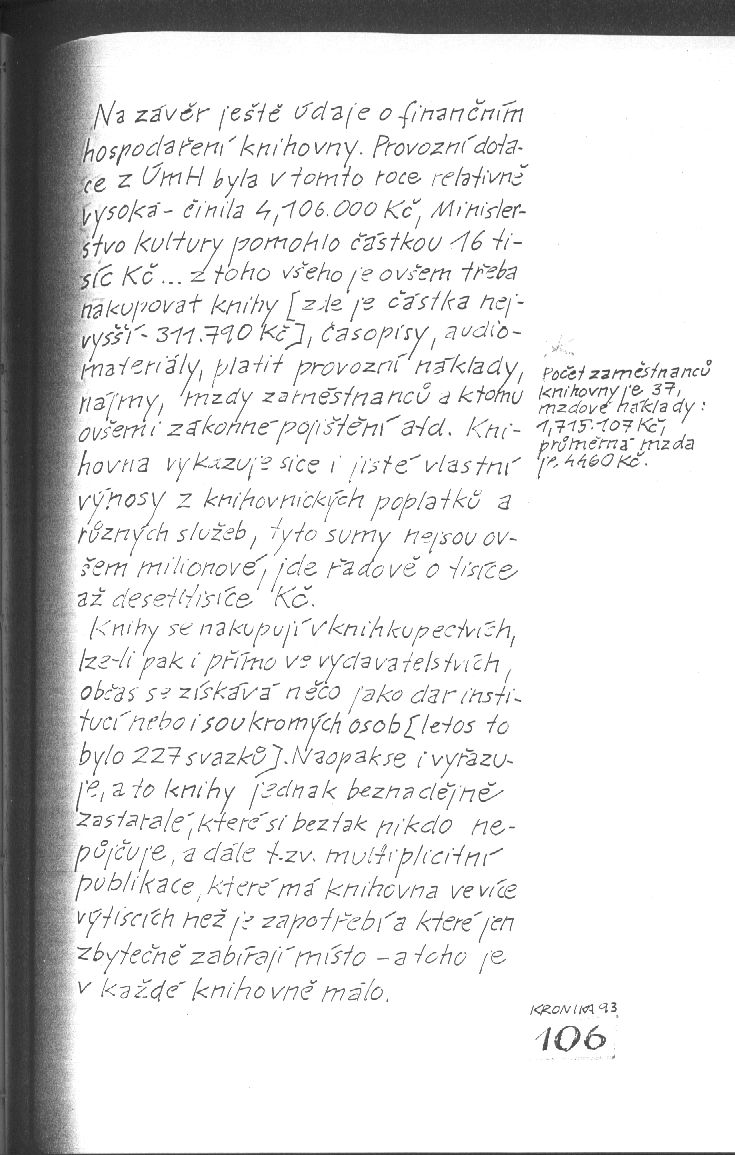 Na závěr ještě údaje o finančním
hospodaření knihovny. Provozní dota-
ce z ÚmH byla v tomto roce relativně
vysoká - činila 4,106.000 Kč, Minister-
stvo kultury pomohlo částkou 16 ti-
síc Kč ... z toho všeho je ovšem třeba
nakupovat knihy [zde je částka nej-
vyšší - 311.790 Kč], časopisy, audio-
materiály, platit provozní náklady,
nájmy, mzdy zaměstnanců a k tomu
ovšem i zákonné pojištění atd. Kni-
hovna vykazuje sice i jisté vlastní
výnosy z knihovnických poplatků a
různých služeb, tyto sumy nejsou ov-
šem milionové, jde řádově o tisíce
až desetitisíce Kč.
Knihy se nakupují v knihkupectvích,
lze-li pak i přímo ve vydavatelstvích,
občas se získává něco jako dar insti-
tucí nebo i soukromých osob [letos to
bylo 227 svazků]. Naopak se i vyřazu-
je, a to knihy jednak beznadějně
zastaralé, které si beztak nikdo ne-
půjčuje, a dále t.zv. multiplicitní
publikace, které má knihovna ve více
výtiscích než je zapotřebí a které jen
zbytečně zabírají místo - a toho je
v každé knihovně málo.
Počet zaměstnanců
knihovny je 37,
mzdové náklady:
1,715.107 Kč,
průměrná mzda
je 4460 Kč.
KRONIKA 93
106